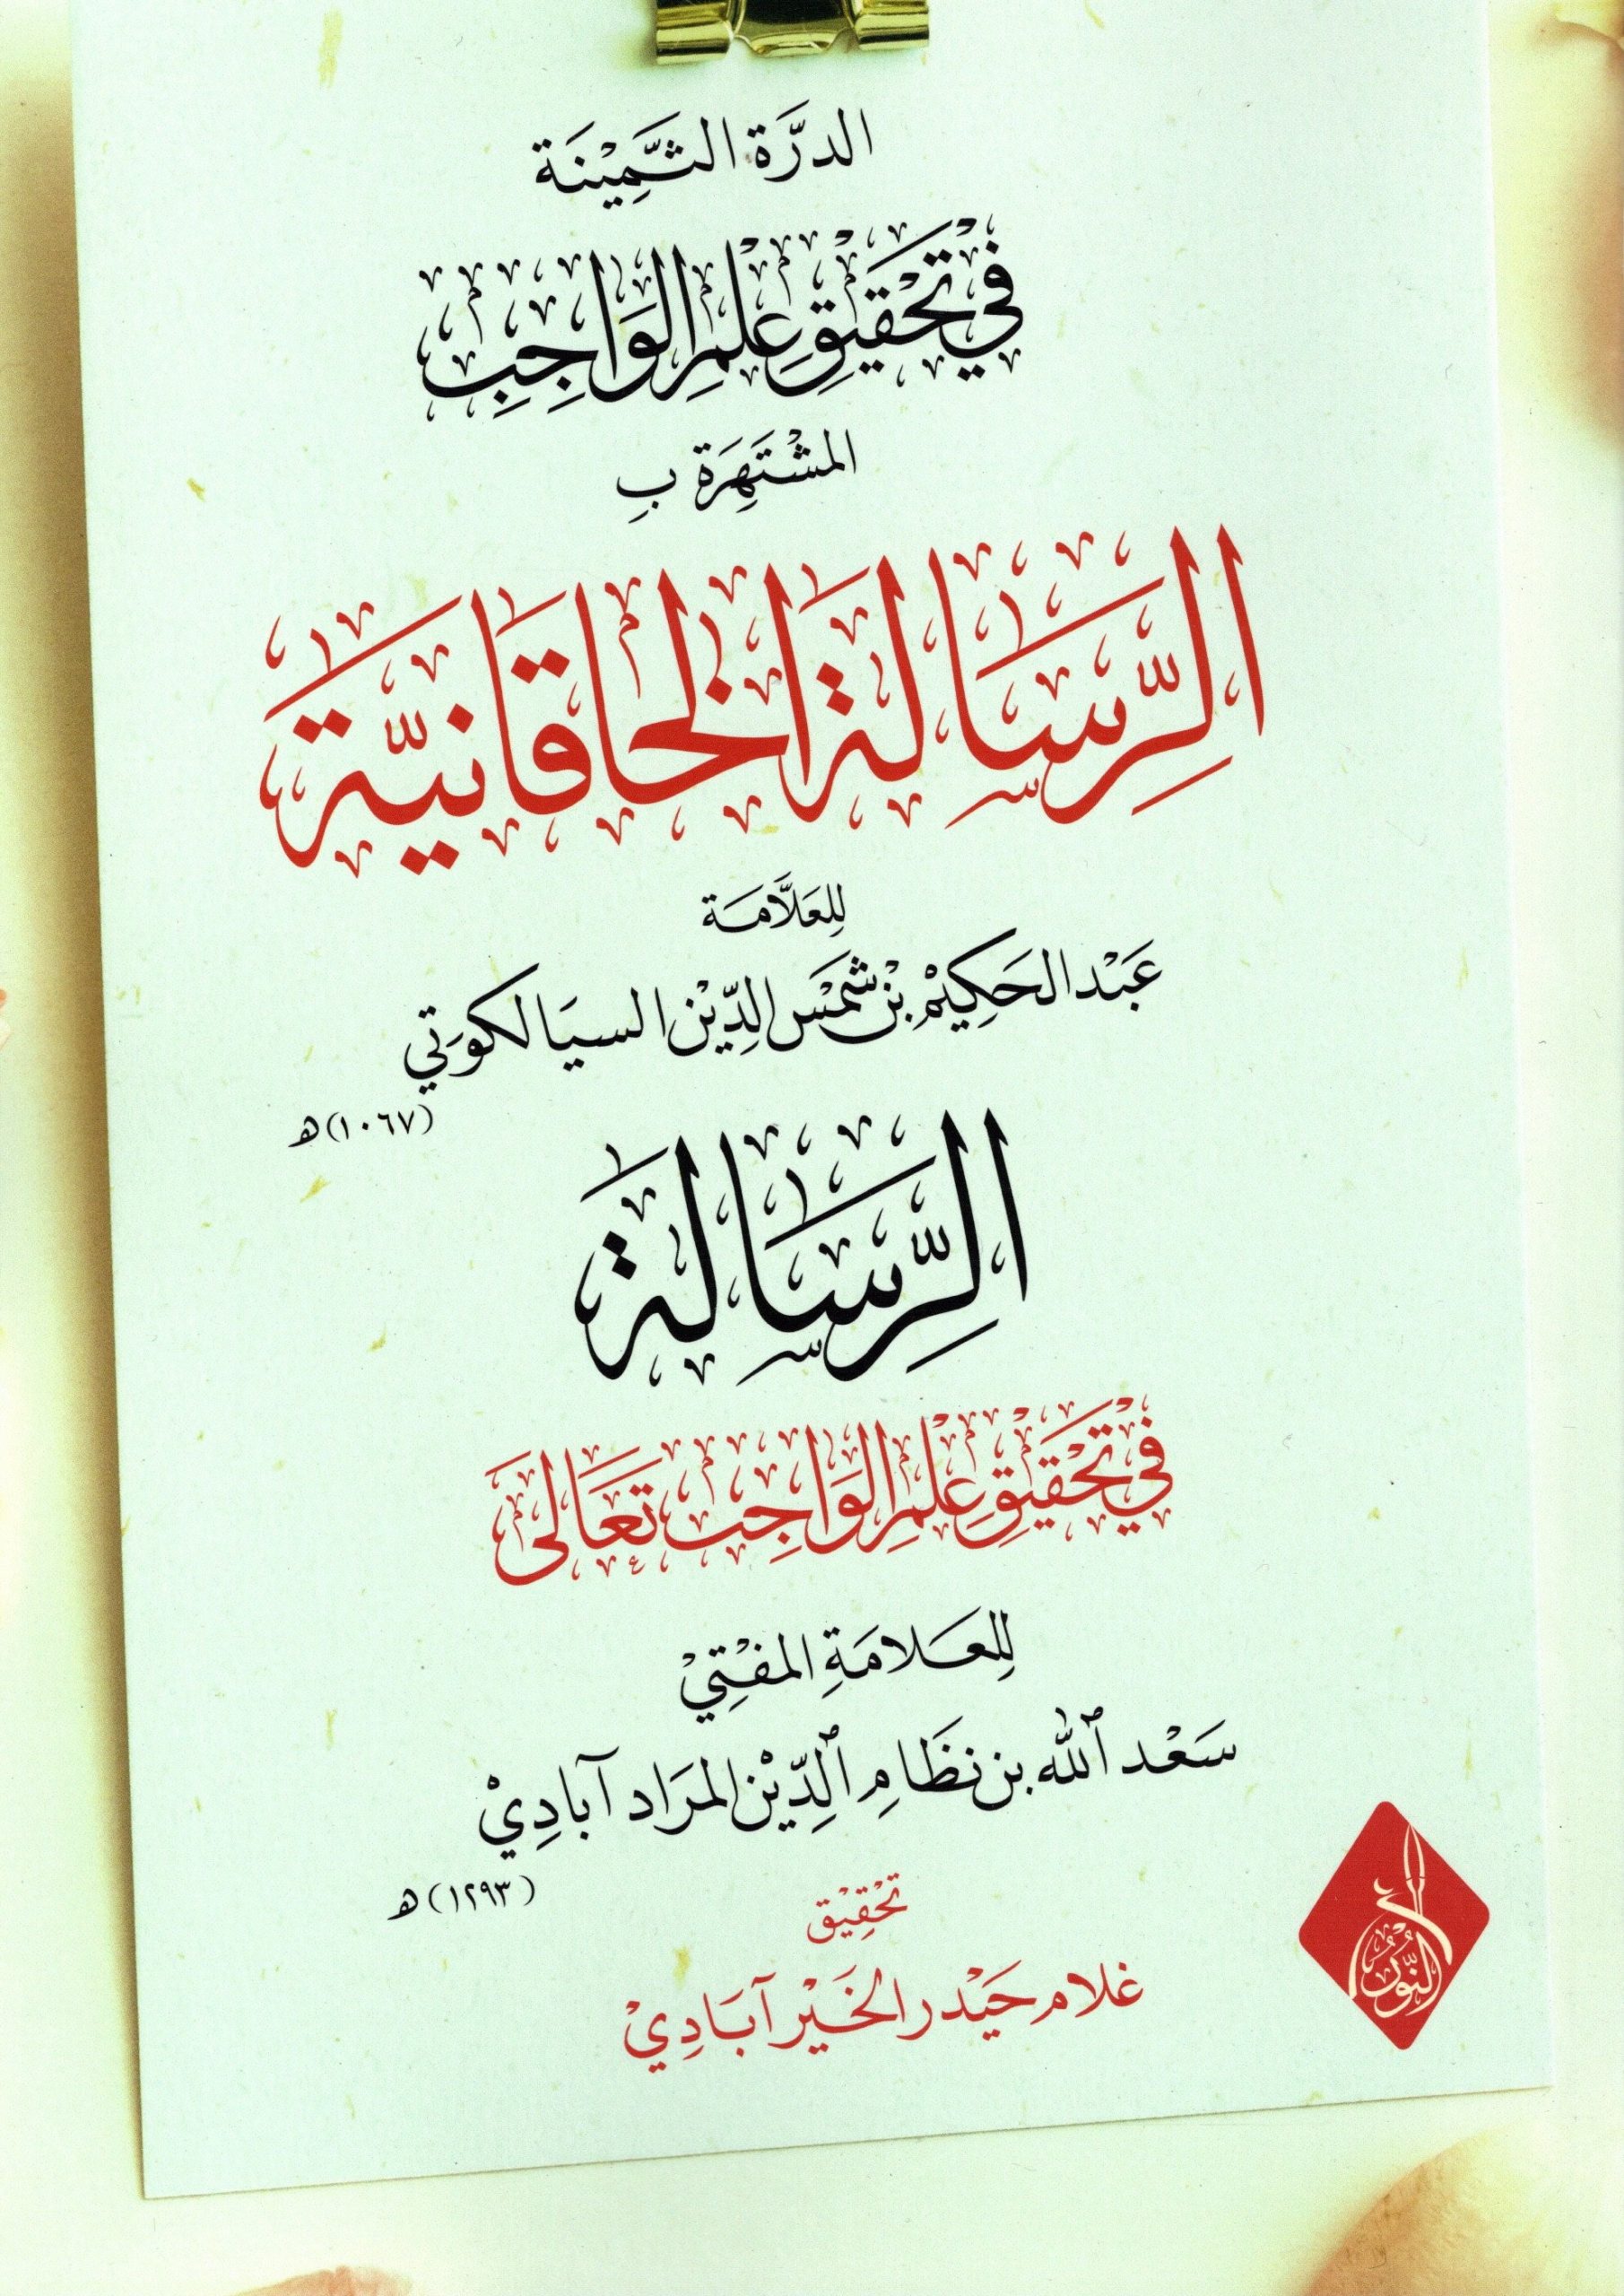 الدرَّة الثَّمِيْنَة
فِيْ تَحْقِيْقِ عِلْمِ الوَاجِبِ
المشْتَهِرَة بِ
الرِّسَالَة الخَاقَانِيَّة
لِلعَلَّامَة
عَبْد الحَكِيْم بْن شَمْس الدِّيْن السيَالكوَتي
(١٠٦٧) هـ
الرِّسَالَة
فِيْ تَحْقِيْقِ عِلْمِ الوَاجِب تَعَالَى
لِلعَلامَةِ المفْتِيْ
سَعْد ٱللّٰه بن نظَامِ ٱلدِّيْن المرَاد آبادِيْ
(١٢٩٣) هـ
تَحْقِيْق
غلام حَيْدر الخَيْر آبَادِيْ
النُّور